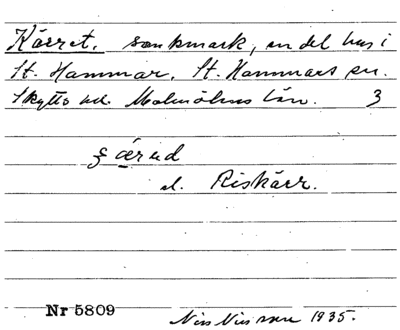 Kärret. sankmark, en del hus i
St. Hammar. St. Hammars sn.
Skytts hd. Malmöhus län. 3
ꞩ ærəd
el. Riskärr.
Nr 5809
Nils Nilsson 1935.